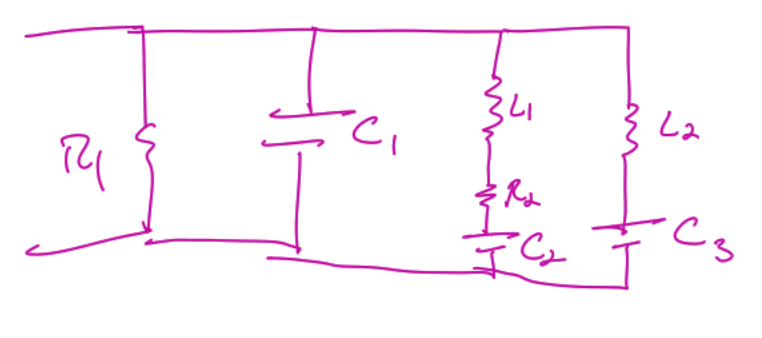 R1
C1
L1
R2
C2
L2
C3